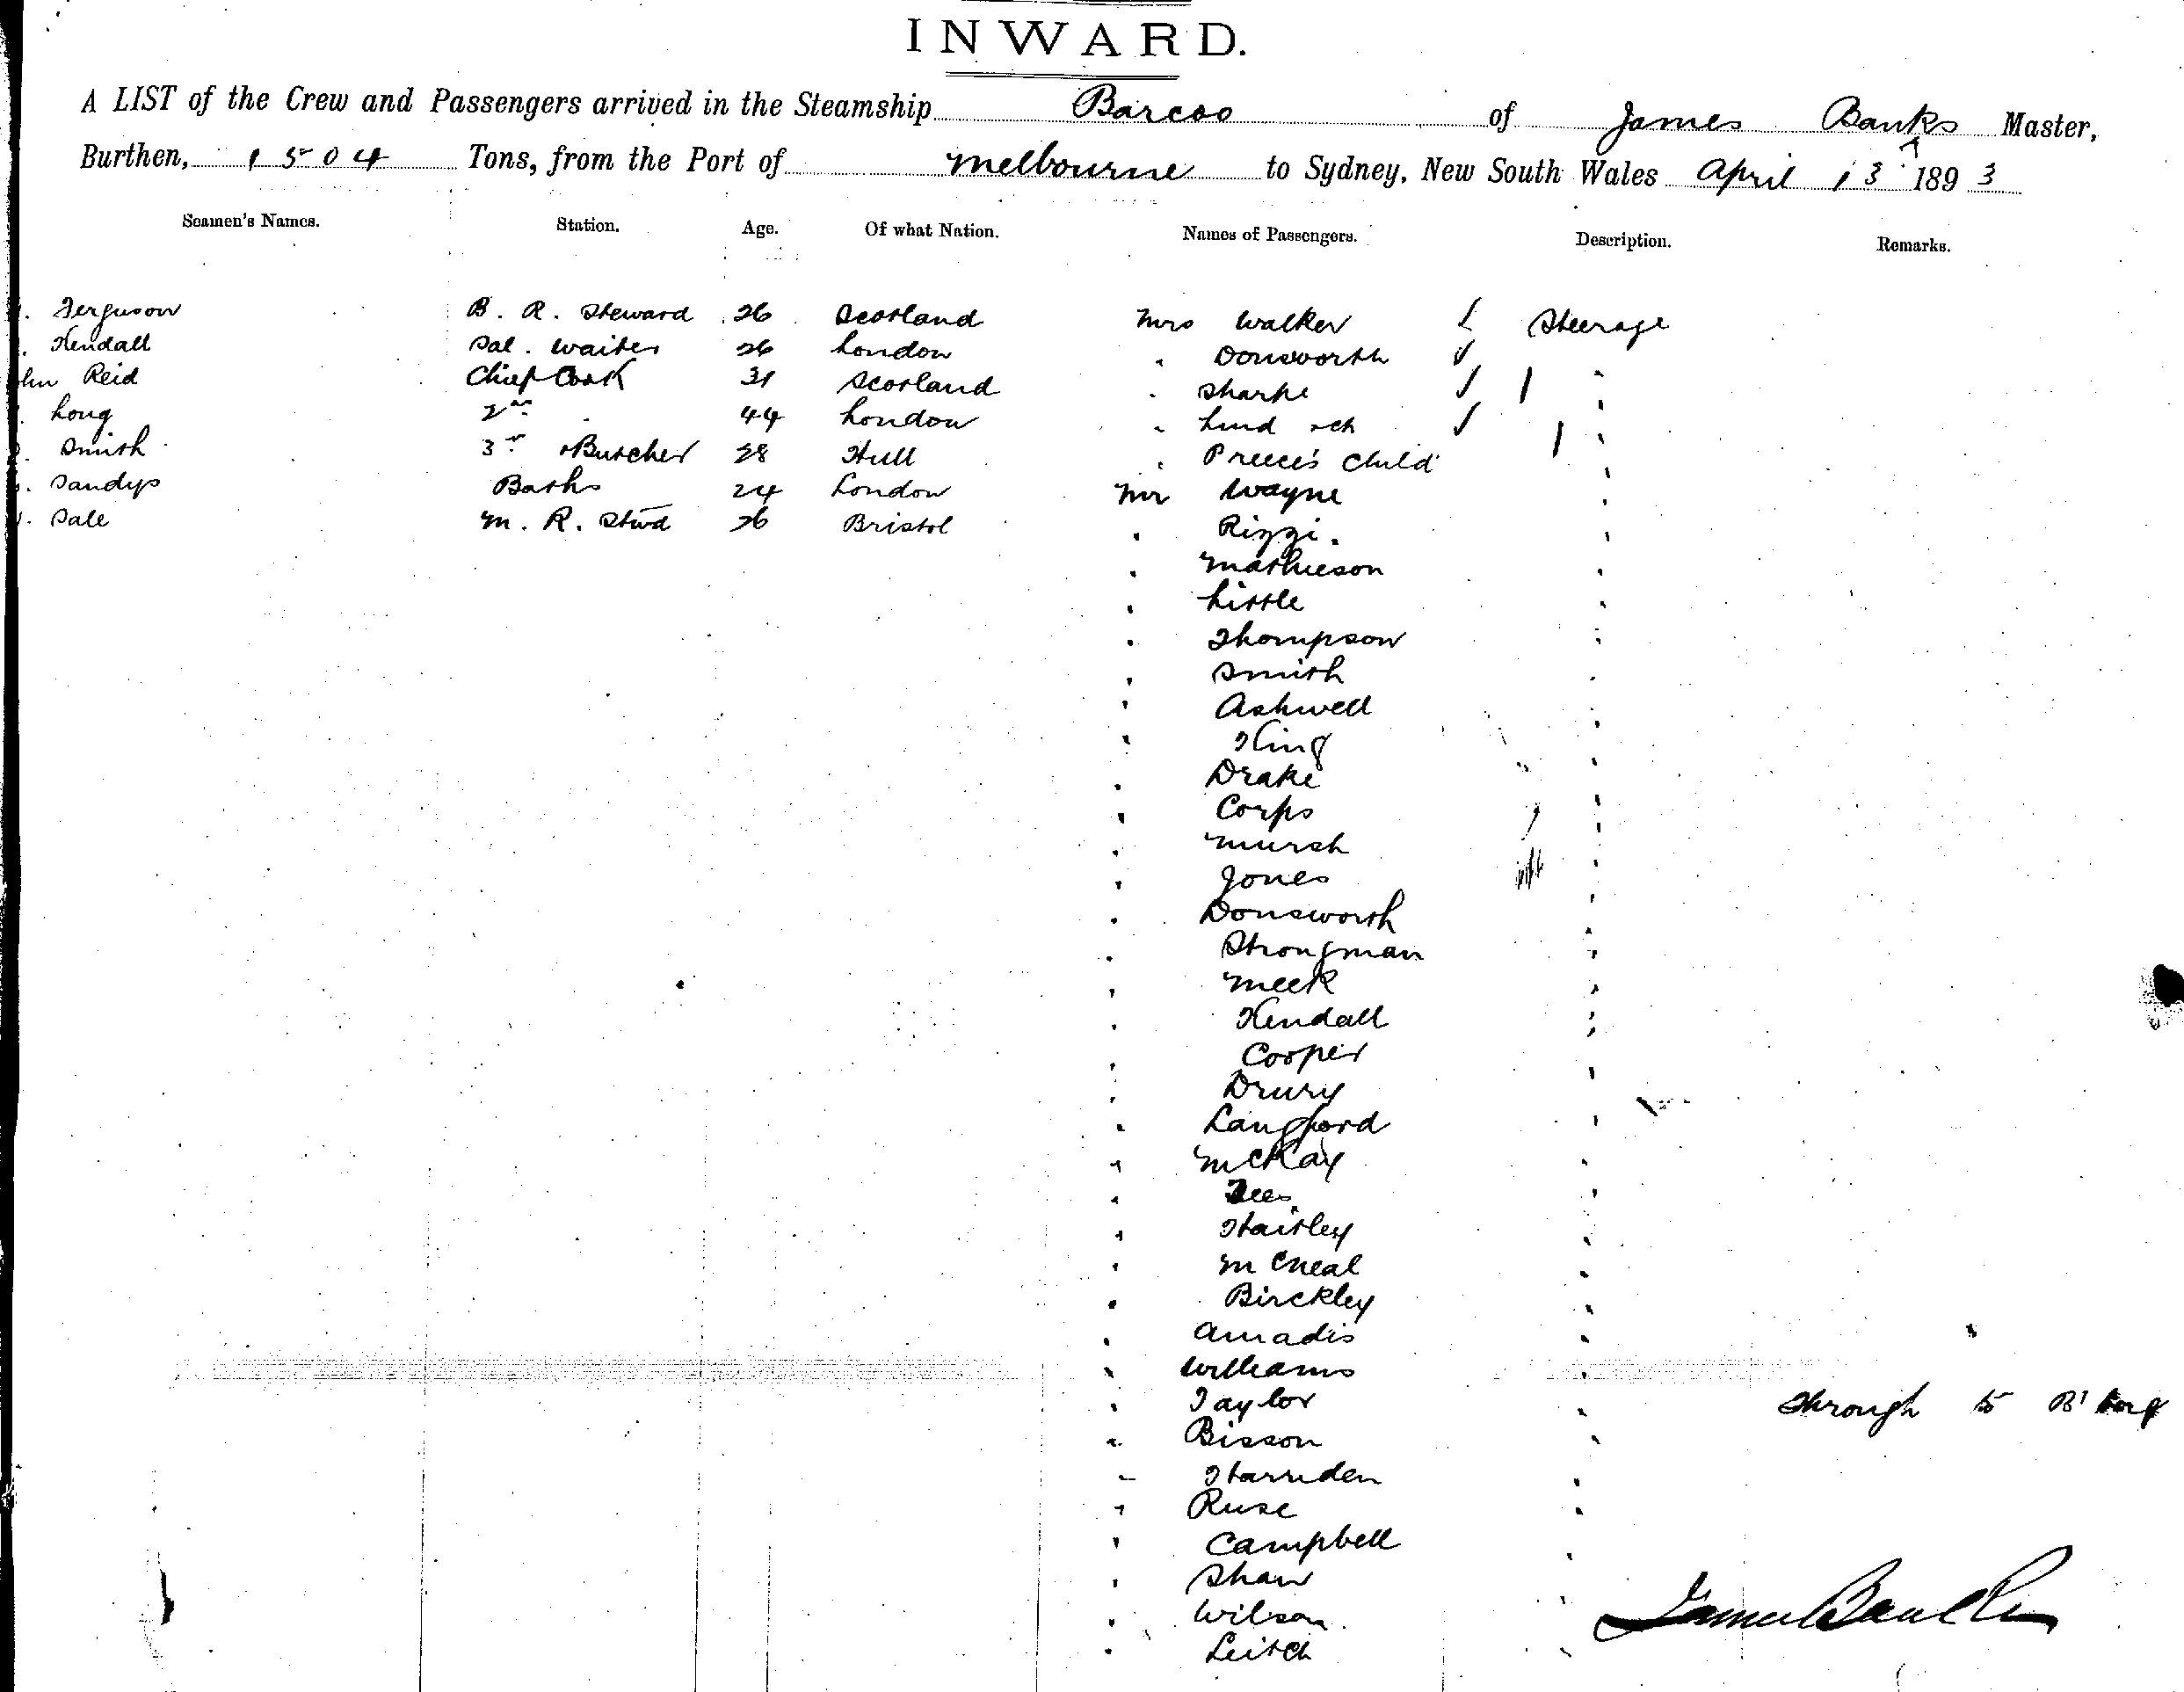 INWARD.
A LIST of the Crew and Passengers arrived in the Steamship Barcoo of James Banks Master,
Burthen, 1504 Tons, from the Port of Melbourne to Sydney, New South Wales April 13 1893
Seamen's Names. Station. Age. Of what Nation. Names of Passengers. Description. Remarks.
Ferguson B. R. Steward 26 Scotland Mrs Walker Steerage
Kendall Sal. Waiter 26 London " Donsworth "
hn Reid Chief Cook 31 Scotland " Sharpe 1 "
Long 2nd " 44 London " Lind "
Smith 3r Butcher 28 Hull " Preece's Child 1 "
Sandys Baths 24 London Mr Wayne "
Sale M. R. Stwd 26 Bristol " Rizzi. "
" Mathieson "
" Little "
" Thompson "
" Smith "
" Ashwell "
" King "
" Drake "
" Corps "
" Murch "
" Jones "
" Donsworth "
" Strongman "
" Meek "
" Kendall "
" Cooper "
" Drury "
" Langford "
" McKay "
" Tees "
" Haitley "
" McNeal "
" Birckley "
" Amadis "
" Williams
" Taylor " Through to
" Bisson "
" Harriden "
" Ruse "
" Campbell "
" Shaw
" Wilson "
" Leitch "
James Banks